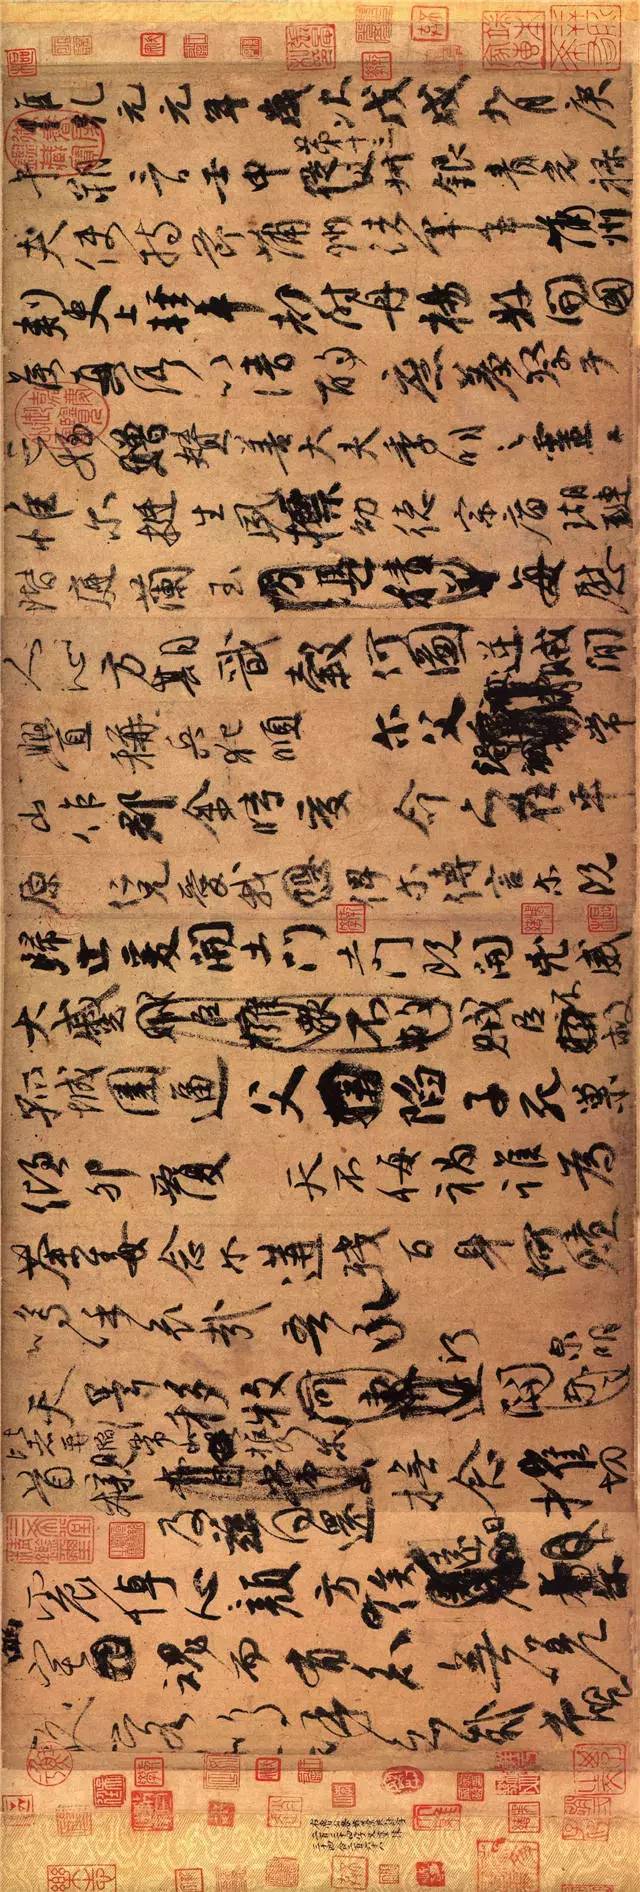 維乾元元年歲次戊戌九月庚
午朔三日壬申第十三叔銀青光祿
夫使持節蒲州諸軍事蒲州
刺史上輕車都尉丹楊縣開國
侯真卿以清酌庶羞祭于
亡姪贈贊善大夫季明之靈曰
惟爾挺生夙標幼德宗廟瑚璉
階庭蘭玉每慰
人心方期戩穀何圖逆賊間
釁稱兵犯順爾父竭誠常
山作郡余時受命亦在平
原仁兄愛我俾爾傳言爾既
歸止爰開土門土門既開凶威
大蹙賊臣不救
孤城圍逼父陷子死巢
傾卵覆天不悔禍誰為
荼毒念爾遘殘百身何贖
嗚乎哀哉吾承
天澤移牧河關泉明
比者再陷常山攜爾
首櫬及茲同還撫念摧切
震悼心顏方俟遠日
卜爾幽宅魂而有知無嗟
久客嗚呼哀哉尚饗